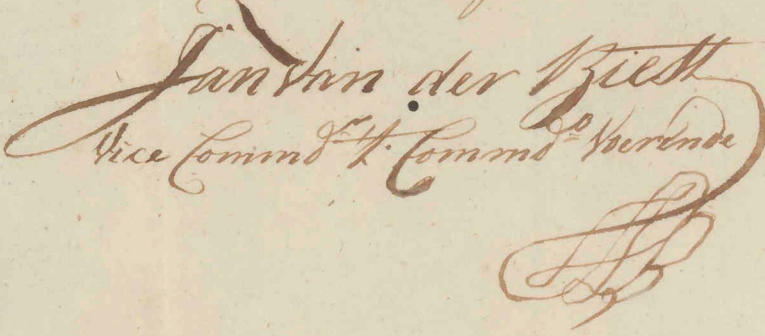 Jan Van der Biest
Vice Commdr. 't. Commdo Voerende